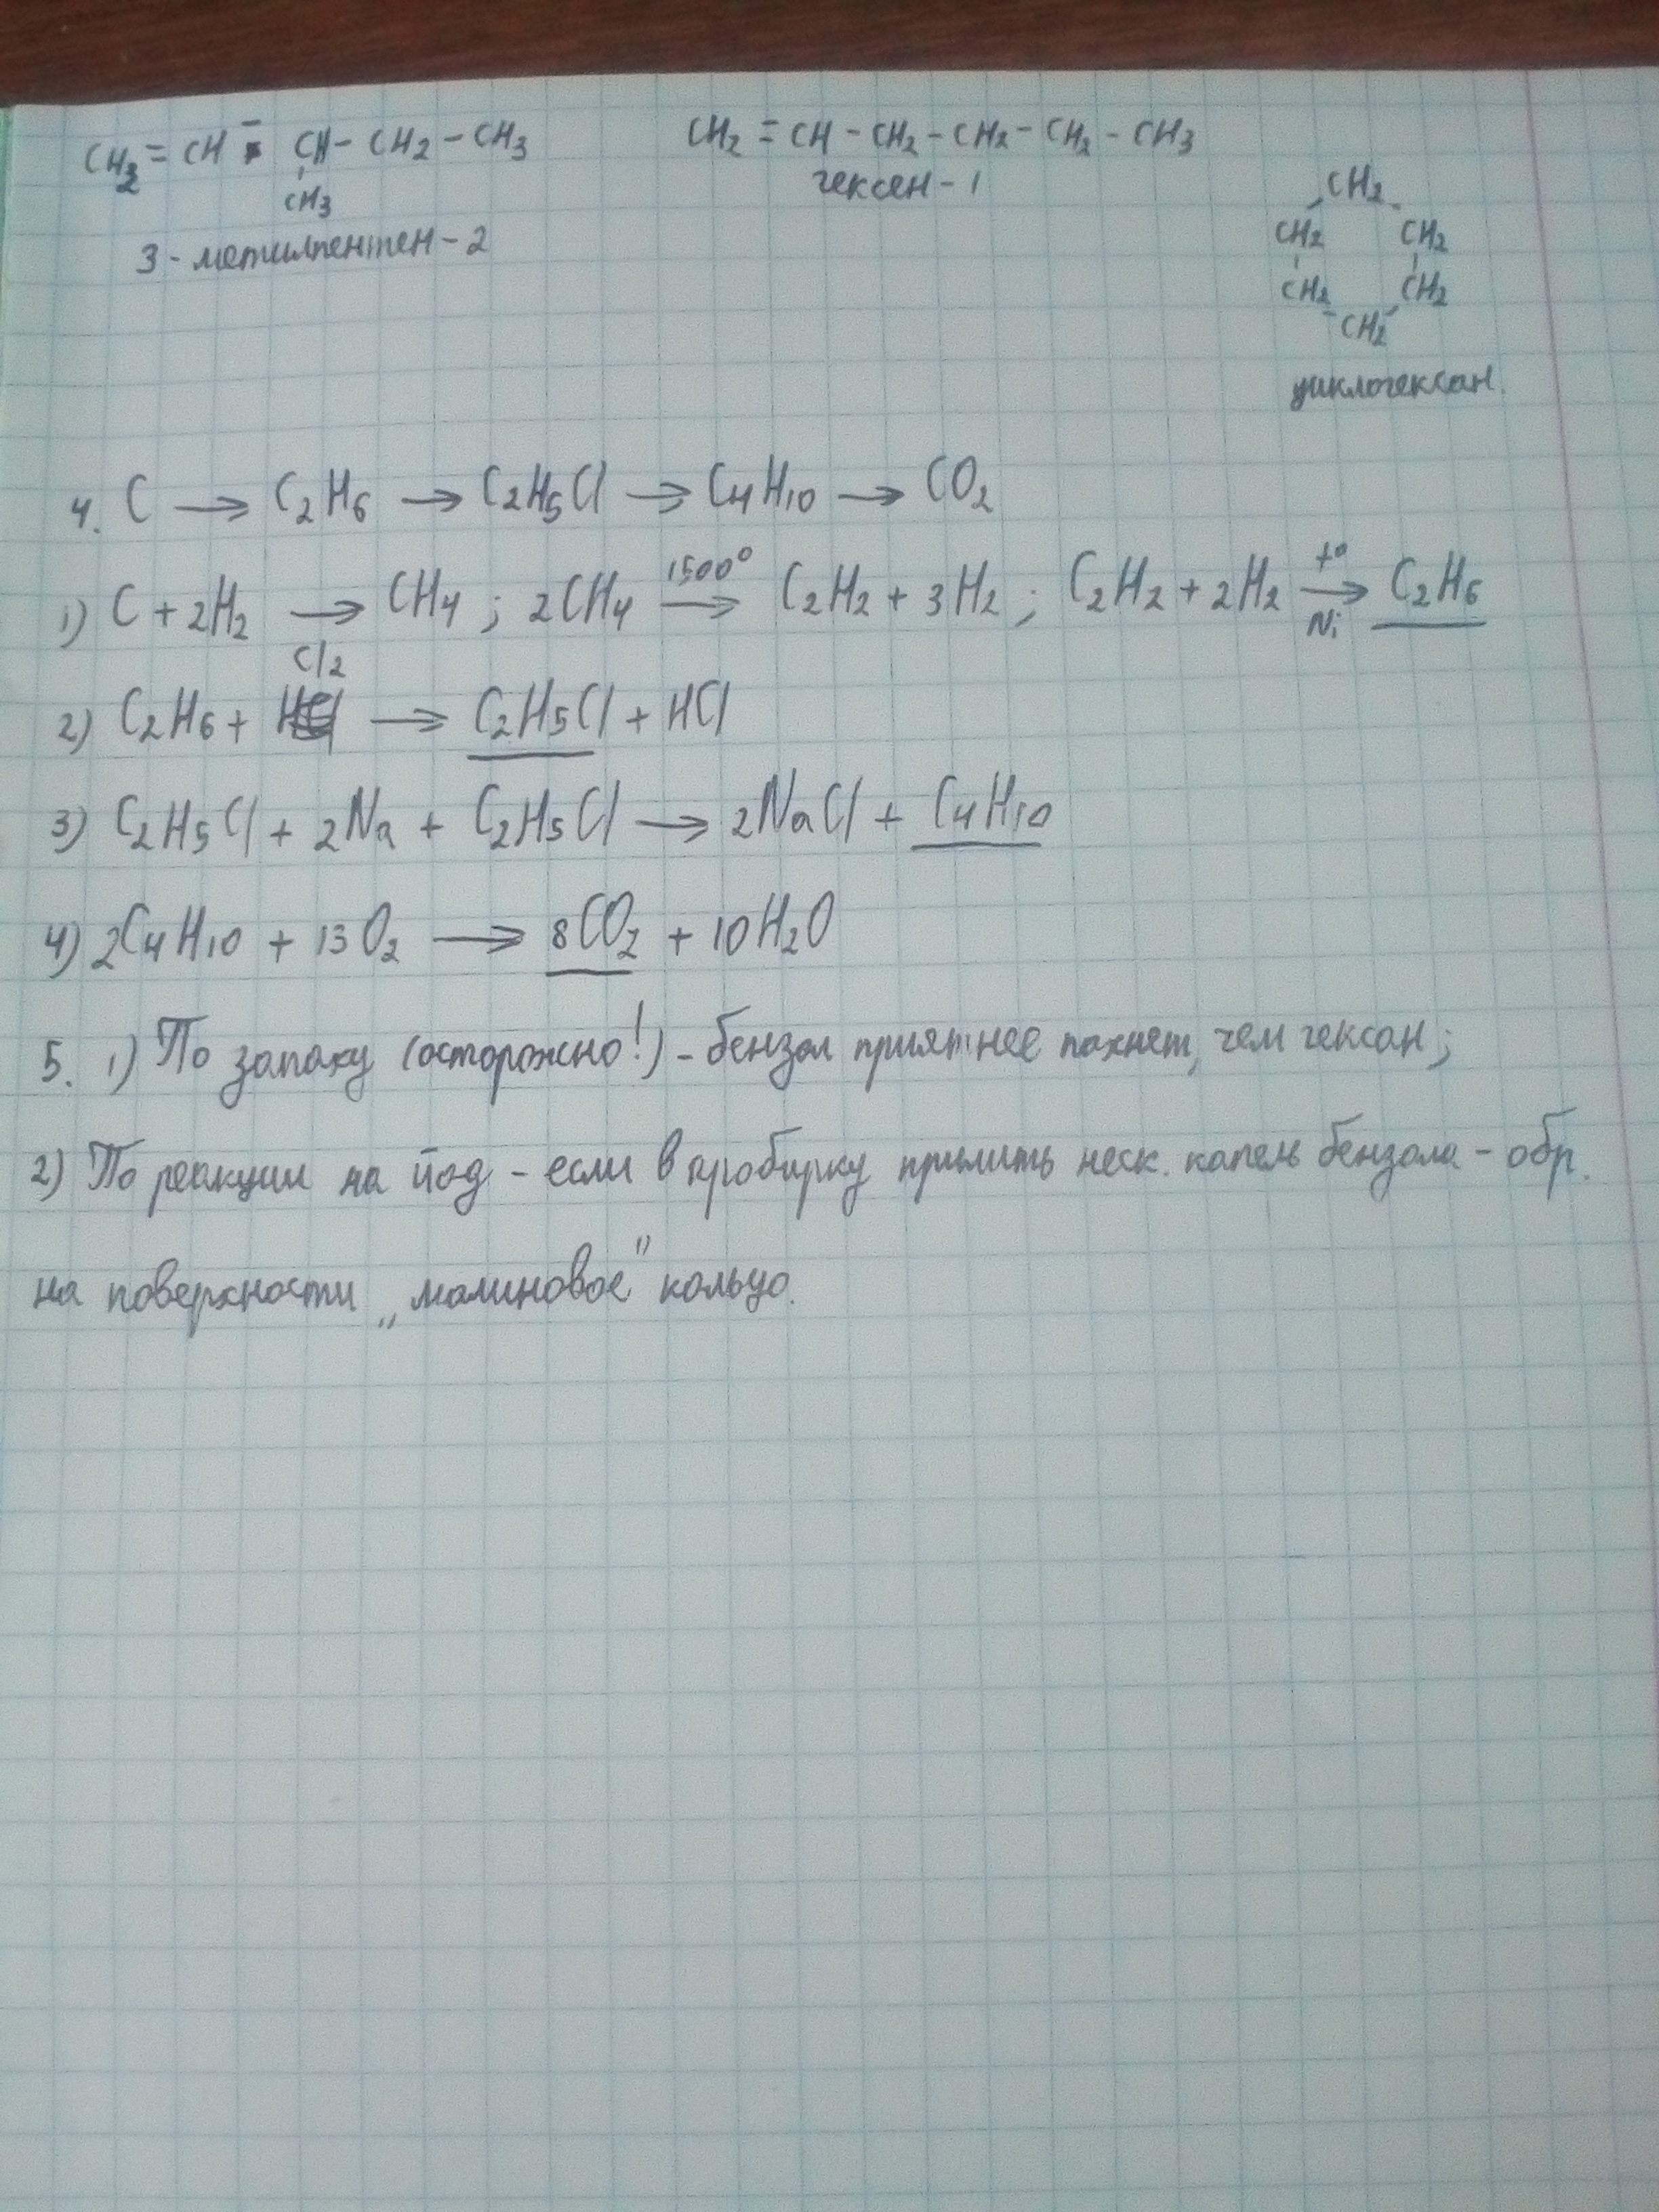 CH₂ = CH - CH - CH₂ - CH₃
CH₃
3 - метилпентен - 2
CH₂ = CH - CH₂ - CH₂ - CH₂ - CH₃
гексен - 1
CH₂
CH₂ CH₂
CH₂ CH₂
CH₂
циклогексан.
4. C → C₂H₆ → C₂H₅Cl → C₄H₁₀ → CO₂
1) C + 2H₂ → CH₄ ; 2CH₄ 1500° → C₂H₂ + 3H₂ ; C₂H₂ + 2H₂ t° → Ni C₂H₆
2) C₂H₆ + Cl₂ → C₂H₅Cl + HCl
3) C₂H₅Cl + 2Na + C₂H₅Cl → 2NaCl + C₄H₁₀
4) 2C₄H₁₀ + 13O₂ → 8CO₂ + 10H₂O
5. 1) По запаху (осторожно!) - бензол приятнее пахнет, чем гексан;
2) По реакции на йод - если в пробирку прилить неск. капель бензола - обр.
на поверхности „малиновое" кольцо.